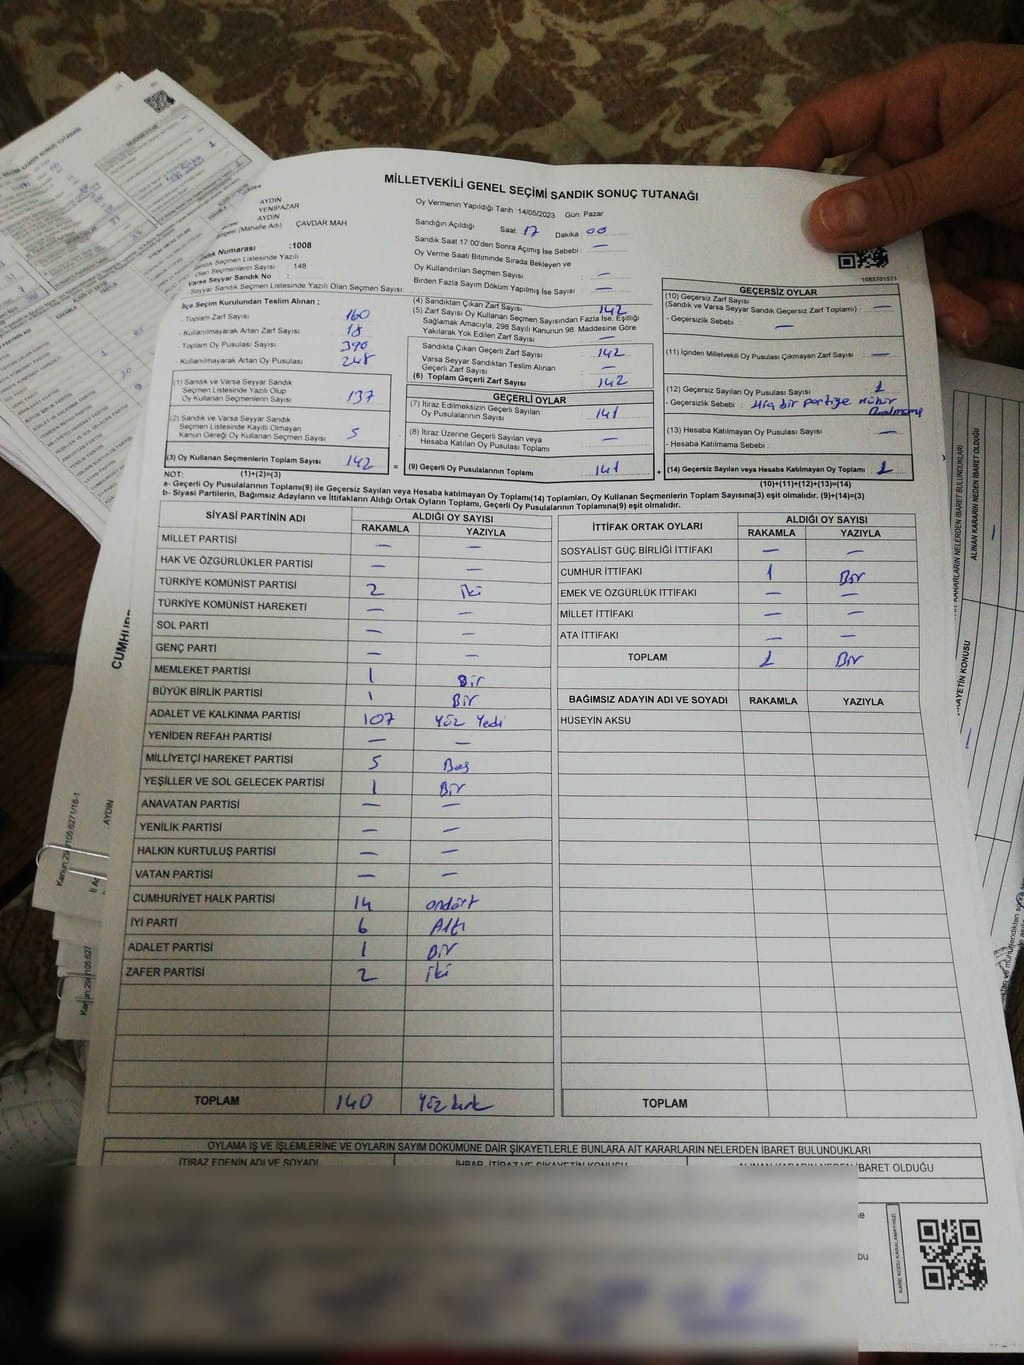 MİLLETVEKİLİ GENEL SEÇİMİ SANDIK SONUÇ TUTANAĞI
AYDIN
YENİPAZAR
AYDIN
(Mahalle Adı) ÇAVDAR MAH
Numarası :1008
Sandık Seçmen Listesinde Yazılı
Olan Seçmenlerin Sayısı 148
Varsa Seyyar Sandık No :
Seyyar Sandık Seçmen Listesinde Yazılı Olan Seçmen Sayısı:
Oy Vermenin Yapıldığı Tarih 14/05/2023 Gün Pazar
Sandığın Açıldığı Saat 17 Dakika 00
Sandık Saat 17.00'den Sonra Açılmış İse Sebebi : —
Oy Verme Saati Bitiminde Sırada Bekleyen ve
Oy Kullandırılan Seçmen Sayısı : —
Birden Fazla Sayım Döküm Yapılmış İse Sayısı : —
1083701521
İlçe Seçim Kurulundan Teslim Alınan ;
- Toplam Zarf Sayısı 160
- Kullanılmayarak Artan Zarf Sayısı 18
- Toplam Oy Pusulası Sayısı 390
- Kullanılmayarak Artan Oy Pusulası 248
(1) Sandık ve Varsa Seyyar Sandık
Seçmen Listesinde Yazılı Olup
Oy Kullanan Seçmenlerin Sayısı 137
(2) Sandık ve Varsa Seyyar Sandık
Seçmen Listesinde Kayıtlı Olmayan
Kanun Gereği Oy Kullanan Seçmen Sayısı 5
(3) Oy Kullanan Seçmenlerin Toplam Sayısı 142 =
(4) Sandıktan Çıkan Zarf Sayısı 142
(5) Zarf Sayısı Oy Kullanan Seçmen Sayısından Fazla İse, Eşitliği
Sağlamak Amacıyla, 298 Sayılı Kanunun 98. Maddesine Göre
Yakılarak Yok Edilen Zarf Sayısı : —
Sandıkta Çıkan Geçerli Zarf Sayısı 142
Varsa Seyyar Sandıktan Teslim Alınan
Geçerli Zarf Sayısı —
(6) Toplam Geçerli Zarf Sayısı 142
GEÇERLİ OYLAR
(7) İtiraz Edilmeksizin Geçerli Sayılan
Oy Pusulalarının Sayısı 141
(8) İtiraz Üzerine Geçerli Sayılan veya
Hesaba Katılan Oy Pusulası Toplamı —
(9) Geçerli Oy Pusulalarının Toplamı 141 +
GEÇERSİZ OYLAR
(10) Geçersiz Zarf Sayısı
(Sandık ve Varsa Seyyar Sandık Geçersiz Zarf Toplamı) : —
- Geçersizlik Sebebi : —
(11) İçinden Milletvekili Oy Pusulası Çıkmayan Zarf Sayısı : —
(12) Geçersiz Sayılan Oy Pusulası Sayısı : 1
- Geçersizlik Sebebi : Hiç bir partiye mühür
(13) Hesaba Katılmayan Oy Pusulası Sayısı : —
- Hesaba Katılmama Sebebi :
(14) Geçersiz Sayılan veya Hesaba Katılmayan Oy Toplamı : 1
NOT: (1)+(2)=(3)
(10)+(11)+(12)+(13)=(14)
a- Geçerli Oy Pusulalarının Toplamı(9) ile Geçersiz Sayılan veya Hesaba katılmayan Oy Toplamı(14) Toplamları, Oy Kullanan Seçmenlerin Toplam Sayısına(3) eşit olmalıdır. (9)+(14)=(3)
b- Siyasi Partilerin, Bağımsız Adayların ve İttifakların Aldığı Ortak Oyların Toplamı, Geçerli Oy Pusulalarının Toplamına(9) eşit olmalıdır.
SİYASİ PARTİNİN ADI ALDIĞI OY SAYISI
RAKAMLA YAZIYLA
MİLLET PARTİSİ — —
HAK VE ÖZGÜRLÜKLER PARTİSİ — —
TÜRKİYE KOMÜNİST PARTİSİ 2 iki
TÜRKİYE KOMÜNİST HAREKETİ — —
SOL PARTİ — —
GENÇ PARTİ — —
MEMLEKET PARTİSİ 1 Bir
BÜYÜK BİRLİK PARTİSİ 1 Bir
ADALET VE KALKINMA PARTİSİ 107 Yüz Yedi
YENİDEN REFAH PARTİSİ — —
MİLLİYETÇİ HAREKET PARTİSİ 5 Beş
YEŞİLLER VE SOL GELECEK PARTİSİ 1 Bir
ANAVATAN PARTİSİ — —
YENİLİK PARTİSİ — —
HALKIN KURTULUŞ PARTİSİ — —
VATAN PARTİSİ — —
CUMHURİYET HALK PARTİSİ 14 ondört
İYİ PARTİ 6 Altı
ADALET PARTİSİ 1 Bir
ZAFER PARTİSİ 2 iki
TOPLAM 140 Yüz kırk
İTTİFAK ORTAK OYLARI ALDIĞI OY SAYISI
RAKAMLA YAZIYLA
SOSYALİST GÜÇ BİRLİĞİ İTTİFAKI — —
CUMHUR İTTİFAKI 1 Bir
EMEK VE ÖZGÜRLÜK İTTİFAKI — —
MİLLET İTTİFAKI — —
ATA İTTİFAKI — —
TOPLAM 1 Bir
BAĞIMSIZ ADAYIN ADI VE SOYADI RAKAMLA YAZIYLA
HÜSEYİN AKSU
TOPLAM
OYLAMA İŞ VE İŞLEMLERİNE VE OYLARIN SAYIM DÖKÜMÜNE DAİR ŞİKAYETLERLE BUNLARA AİT KARARLARIN NELERDEN İBARET BULUNDUKLARI
İTİRAZ EDENİN ADI VE SOYADI İHBAR, İTİRAZ VE ŞİKAYETİN KONUSU ALINAN KARARIN NEDEN İBARET OLDUĞU
KARE KODU KARALAMAYINIZ!
ALINAN KARARIN NEDEN İBARET OLDUĞU
AYDIN